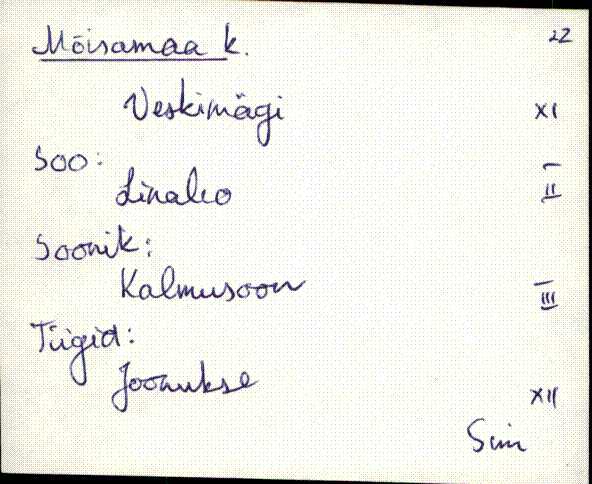 Mõisamaa k. 22
Veskimägi XI
Soo:
Linaleo II
Soonik:
Kalmusoon III
Tiigid:
Joonukse XII
Sim